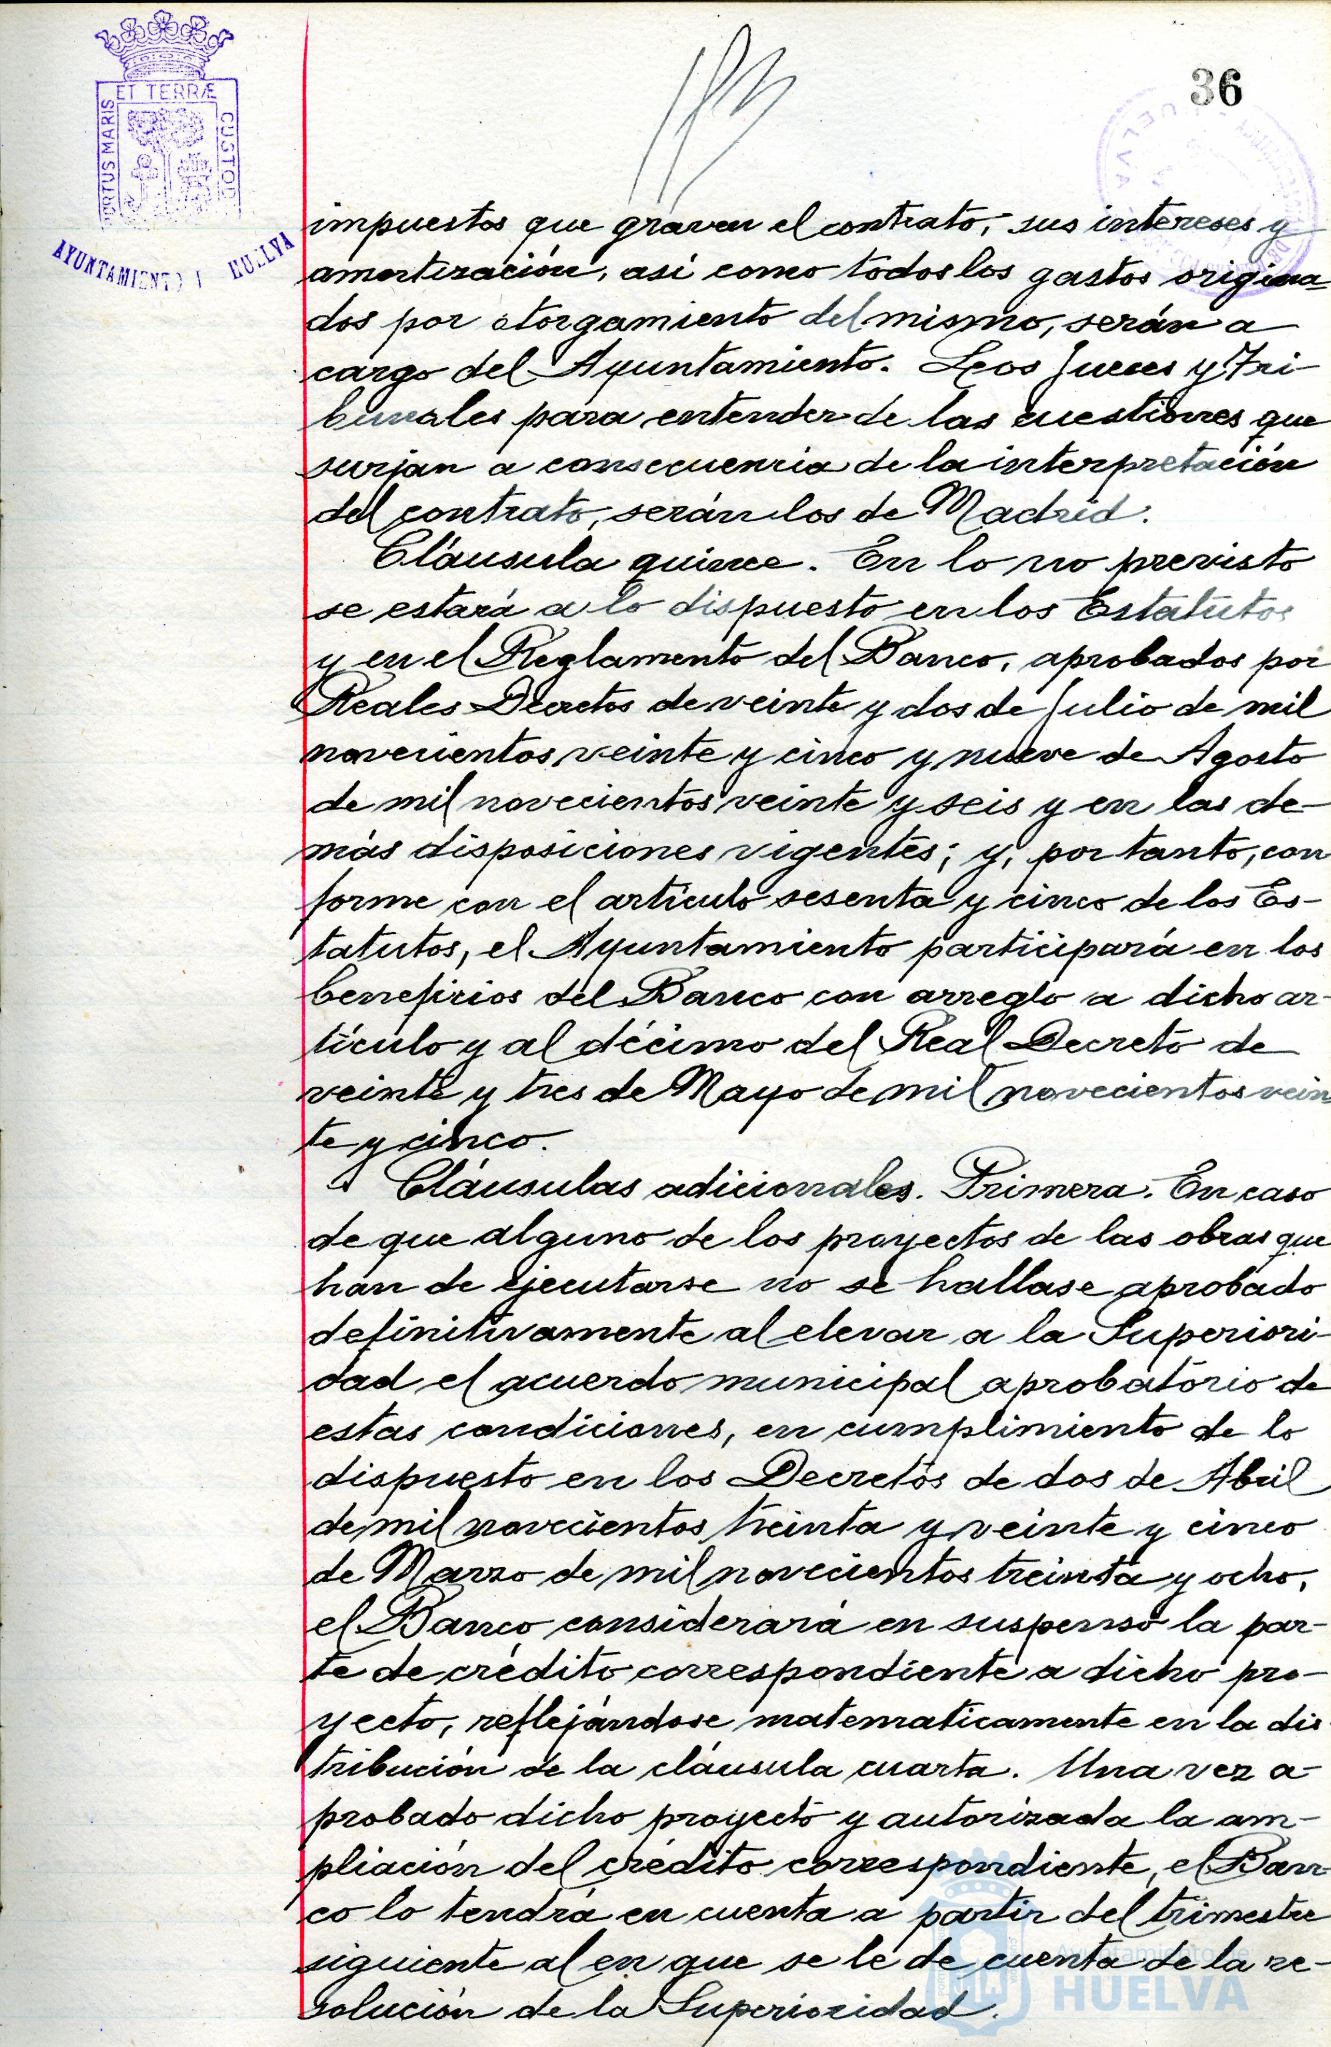 36
ET TERRÆ
PORTUS MARIS
CUSTOD
AYUNTAMIENTO HUELVA
impuestos que graven el contrato, sus intereses y
amortización, así como todos los gastos origina-
dos por otorgamiento del mismo, serán a
cargo del Ayuntamiento. Los Jueces y Tri-
bunales para entender de las cuestiones que
surjan a consecuencia de la interpretación
del contrato, serán los de Madrid.
Cláusula quince. En lo no previsto
se estará a lo dispuesto en los Estatutos
y en el Reglamento del Banco, aprobados por
Reales Decretos de veinte y dos de Julio de mil
novecientos veinte y cinco y nueve de Agosto
de mil novecientos veinte y seis y en las de-
más disposiciones vigentes; y, por tanto, con
forme con el artículo sesenta y cinco de los Es-
tatutos, el Ayuntamiento participará en los
beneficios del Banco con arreglo a dicho ar-
tículo y al décimo del Real Decreto de
veinte y tres de Mayo de mil novecientos vein
te y cinco.
Cláusulas adicionales. Primera. En caso
de que alguno de los proyectos de las obras que
han de ejecutarse no se hallase aprobado
definitivamente al elevar a la Superiori-
dad el acuerdo municipal aprobatorio de
estas condiciones, en cumplimiento de lo
dispuesto en los Decretos de dos de Abril
de mil novecientos treinta y veinte y cinco
de Marzo de mil novecientos treinta y ocho,
el Banco considerará en suspenso la par-
te de crédito correspondiente a dicho pro-
yecto, reflejándose matematicamente en la dis
tribución de la cláusula cuarta. Una vez a-
probado dicho proyecto y autorizada la am-
pliación del crédito correspondiente, el Ban-
co lo tendrá en cuenta a partir del trimestre
siguiente al en que se le de cuenta de la re-
solución de la Superioridad.
Ayuntamiento de
HUELVA